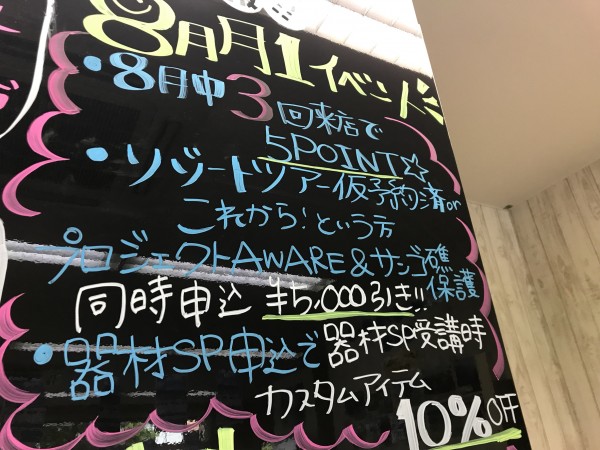 8月月1イベント
・8月中3回来店で
5POINT☆
・リゾートツアー仮予約済or
これから!という方
プロジェクトAWARE&サンゴ礁
保護
同時申込 ¥5,000引き!!
・器材SP申込で器材SP受講時
カスタムアイテム
10%OFF